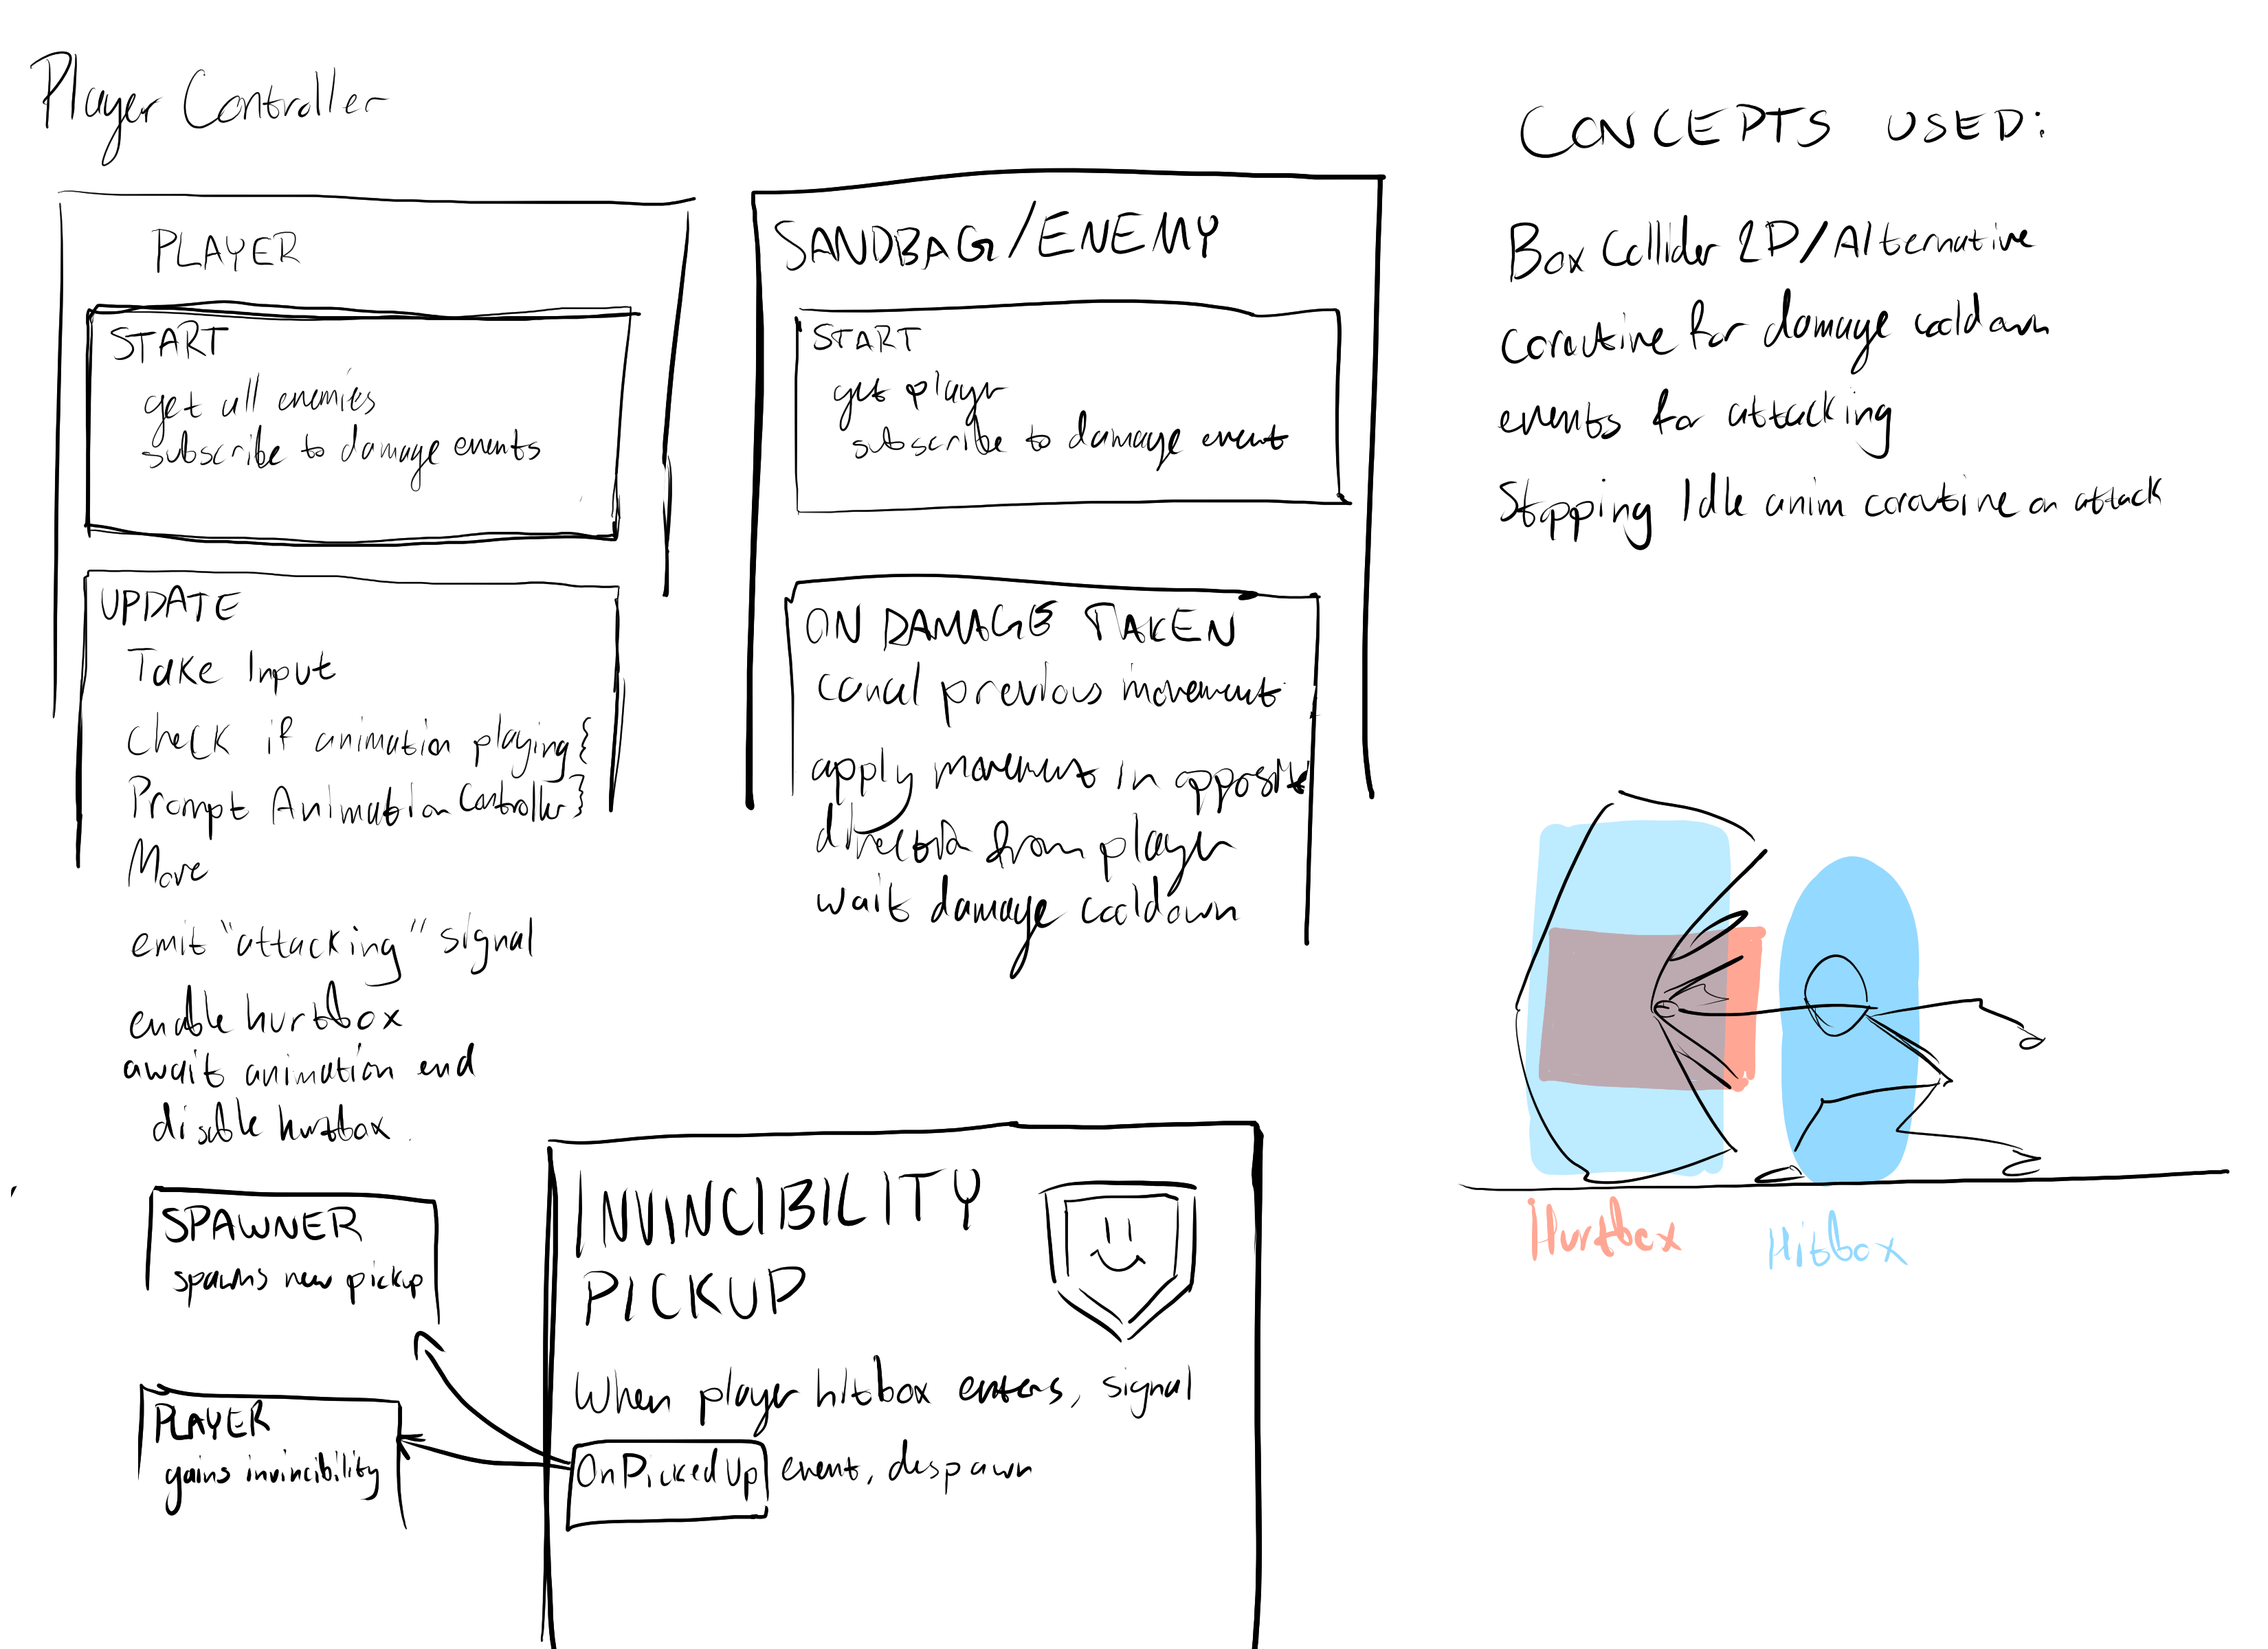 Player Controller
PLAYER
START
get all enemies
subscribe to damage events
UPDATE
Take Input
Check if animation playing {
Prompt Animation Controller}
Move
emit "attacking" signal
enable hurtbox
await animation end
disable hurtbox.
SANDBAG/ENEMY
START
get player
subscribe to damage event
ON DAMAGE TAKEN
cancel previous movement
apply movement in opposite
direction from player
wait damage cooldown
CONCEPTS USED:
Box Collider 2D/Alternative
coroutine for damage cooldown
events for attacking
Stopping Idle anim coroutine on attack
Hurtbox
Hitbox
SPAWNER
spawns new pickup
PLAYER
gains invincibility
INVINCIBILITY
PICKUP
When player hitbox enters, signal
OnPickedUp event, despawn